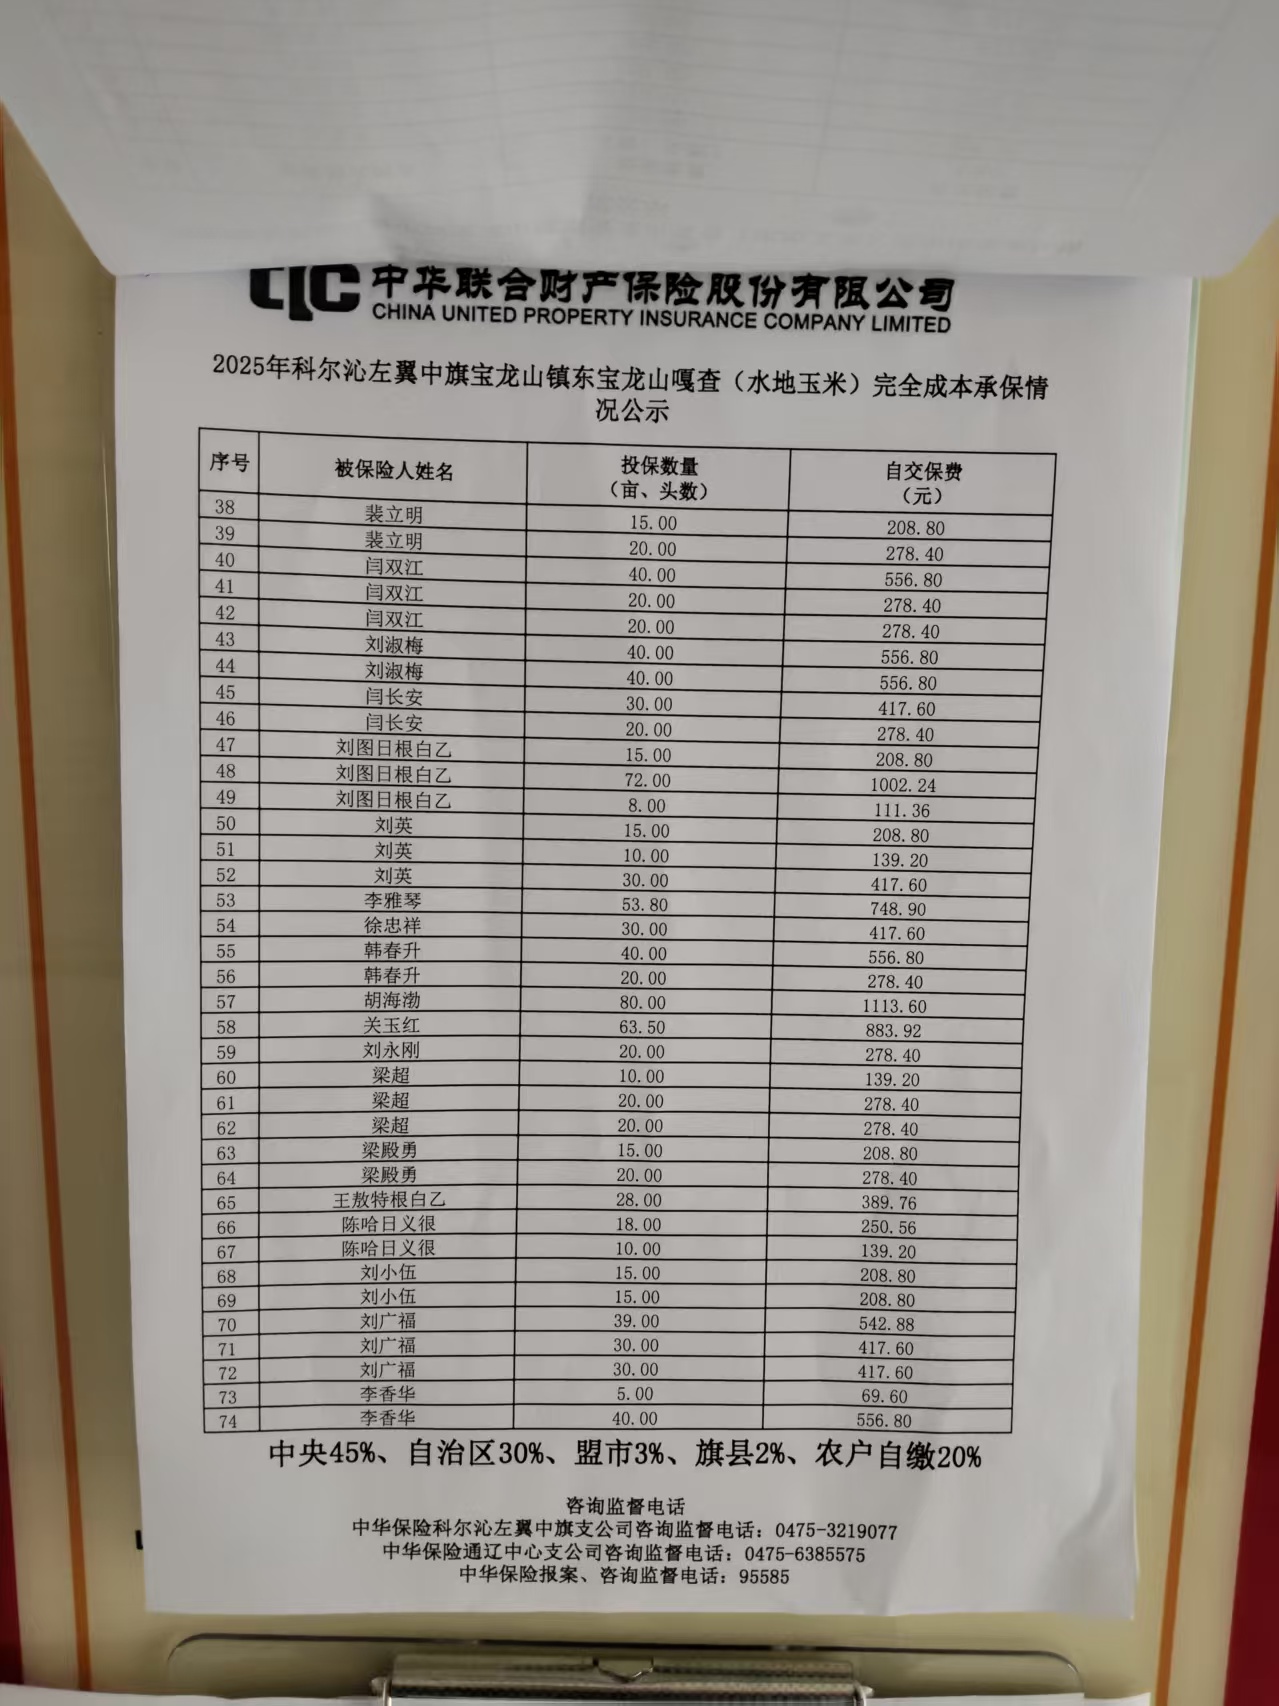 CIC 中华联合财产保险股份有限公司
CHINA UNITED PROPERTY INSURANCE COMPANY LIMITED
2025年科尔沁左翼中旗宝龙山镇东宝龙山嘎查（水地玉米）完全成本承保情
况公示
序号 被保险人姓名 投保数量（亩、头数） 自交保费（元）
38 裴立明 15.00 208.80
39 裴立明 20.00 278.40
40 闫双江 40.00 556.80
41 闫双江 20.00 278.40
42 闫双江 20.00 278.40
43 刘淑梅 40.00 556.80
44 刘淑梅 40.00 556.80
45 闫长安 30.00 417.60
46 闫长安 20.00 278.40
47 刘图日根白乙 15.00 208.80
48 刘图日根白乙 72.00 1002.24
49 刘图日根白乙 8.00 111.36
50 刘英 15.00 208.80
51 刘英 10.00 139.20
52 刘英 30.00 417.60
53 李雅琴 53.80 748.90
54 徐忠祥 30.00 417.60
55 韩春升 40.00 556.80
56 韩春升 20.00 278.40
57 胡海渤 80.00 1113.60
58 关玉红 63.50 883.92
59 刘永刚 20.00 278.40
60 梁超 10.00 139.20
61 梁超 20.00 278.40
62 梁超 20.00 278.40
63 梁殿勇 15.00 208.80
64 梁殿勇 20.00 278.40
65 王敖特根白乙 28.00 389.76
66 陈哈日义很 18.00 250.56
67 陈哈日义很 10.00 139.20
68 刘小伍 15.00 208.80
69 刘小伍 15.00 208.80
70 刘广福 39.00 542.88
71 刘广福 30.00 417.60
72 刘广福 30.00 417.60
73 李香华 5.00 69.60
74 李香华 40.00 556.80
中央45%、自治区30%、盟市3%、旗县2%、农户自缴20%
咨询监督电话
中华保险科尔沁左翼中旗支公司咨询监督电话：0475-3219077
中华保险通辽中心支公司咨询监督电话：0475-6385575
中华保险报案、咨询监督电话：95585